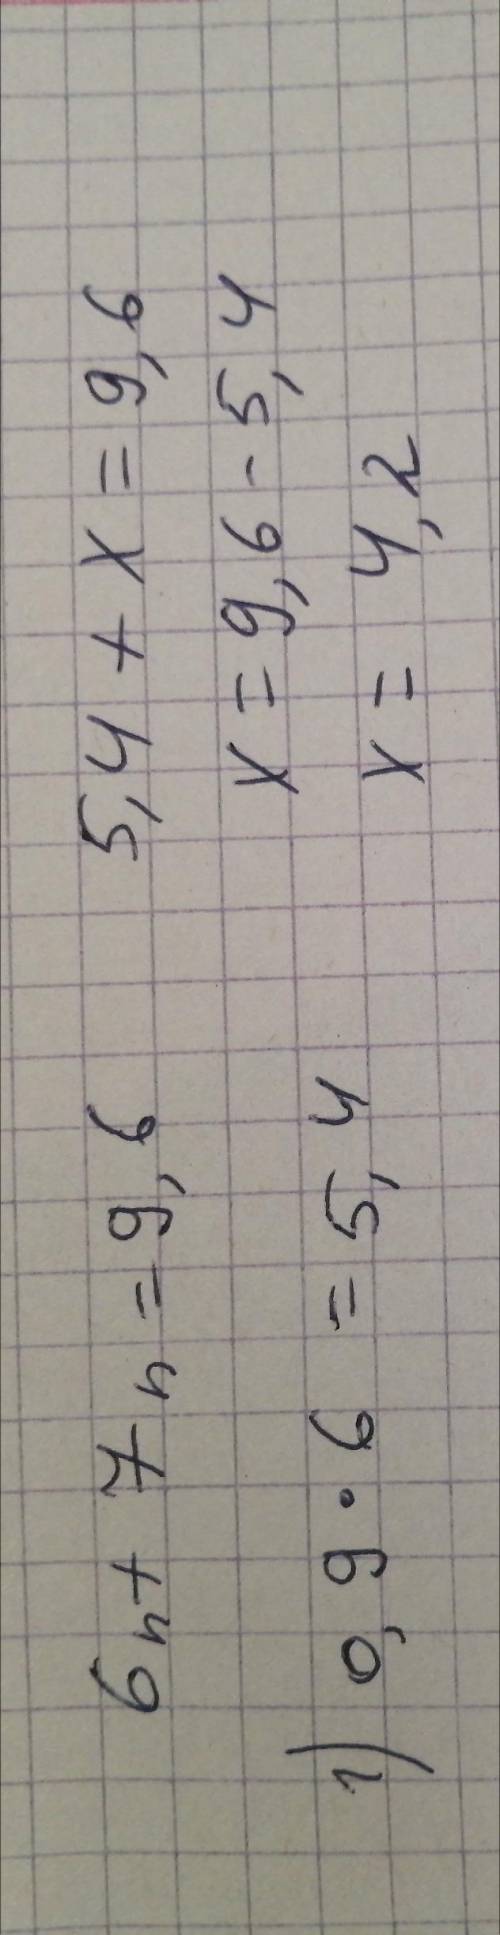 6ч + 7ч = 9,6
1) 0,9 · 6 = 5,4
5,4 + x = 9,6
x = 9,6 - 5,4
x = 4,2